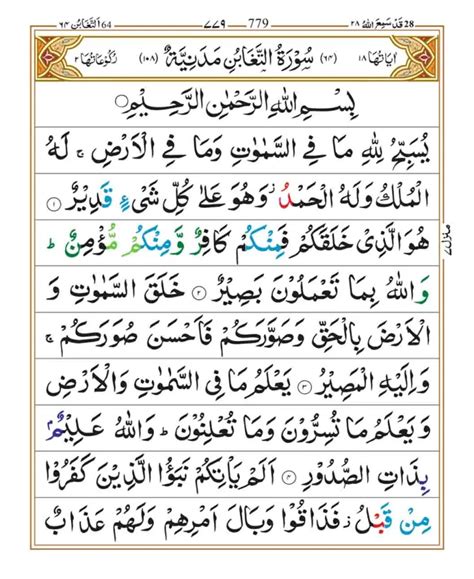 28 قَدْ سَمِعَ اللهُ ٢٨ 779 ٧٧٩ 64 اَلتَّغَابُن ٦٤
اٰيَاتُهَا ١٨ (٦٤) سُوْرَةُ التَّغَابُنِ مَدَنِيَّةٌ (١٠٨) رُكُوْعَاتُهَا ٢
بِسْمِ اللهِ الرَّحْمٰنِ الرَّحِيْمِ
يُسَبِّحُ لِلّٰهِ مَا فِي السَّمٰوٰتِ وَمَا فِي الْاَرْضِ ۚ لَهُ
الْمُلْكُ وَلَهُ الْحَمْدُ ۡ وَهُوَ عَلٰى كُلِّ شَيْءٍ قَدِيْرٌ ١
هُوَ الَّذِيْ خَلَقَكُمْ فَمِنْكُمْ كَافِرٌ وَّمِنْكُمْ مُّؤْمِنٌ ؕ
وَاللهُ بِمَا تَعْمَلُوْنَ بَصِيْرٌ ٢ خَلَقَ السَّمٰوٰتِ وَ
الْاَرْضَ بِالْحَقِّ وَصَوَّرَكُمْ فَاَحْسَنَ صُوَرَكُمْ ۚ
وَاِلَيْهِ الْمَصِيْرُ ٣ يَعْلَمُ مَا فِي السَّمٰوٰتِ وَالْاَرْضِ
وَيَعْلَمُ مَا تُسِرُّوْنَ وَمَا تُعْلِنُوْنَ ؕ وَاللهُ عَلِيْمٌۢ
بِذَاتِ الصُّدُوْرِ ٤ اَلَمْ يَاْتِكُمْ نَبَؤُا الَّذِيْنَ كَفَرُوْا
مِنْ قَبْلُ ۡ فَذَاقُوْا وَبَالَ اَمْرِهِمْ وَلَهُمْ عَذَابٌ
منزل ٧